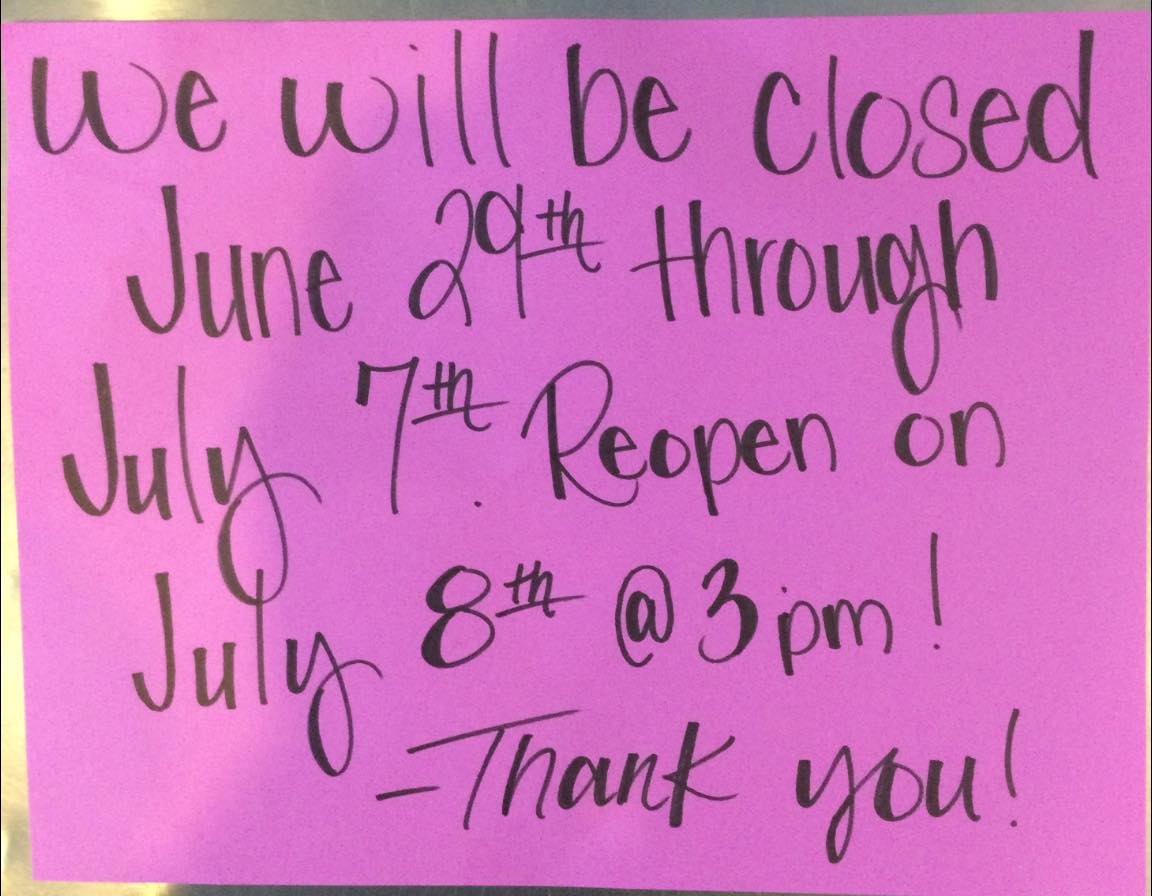 We will be closed
June 29th through
July 7th. Reopen on
July 8th @ 3pm!
-Thank you!